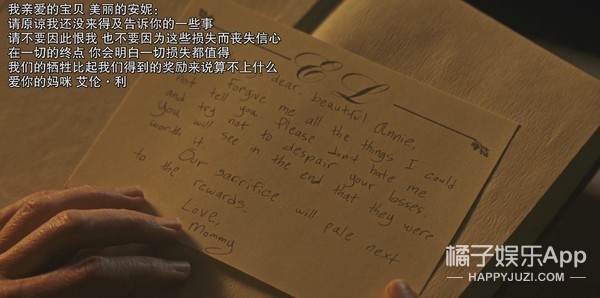 我亲爱的宝贝 美丽的安妮：
请原谅我还没来得及告诉你的一些事
请不要因此恨我 也不要因为这些损失而丧失信心
在一切的终点 你会明白一切损失都值得
我们的牺牲比起我们得到的奖励来说算不上什么
爱你的妈咪 艾伦·利
EL
dear, beautiful Annie,
forgive me all the things I could
not tell you. Please don't hate me
and try not to despair your losses,
You will see in the end that they were
worth it.
Our sacrifice will pale next
to the rewards.
Love,
Mommy
橘子娱乐App
HAPPYJUZI.COM